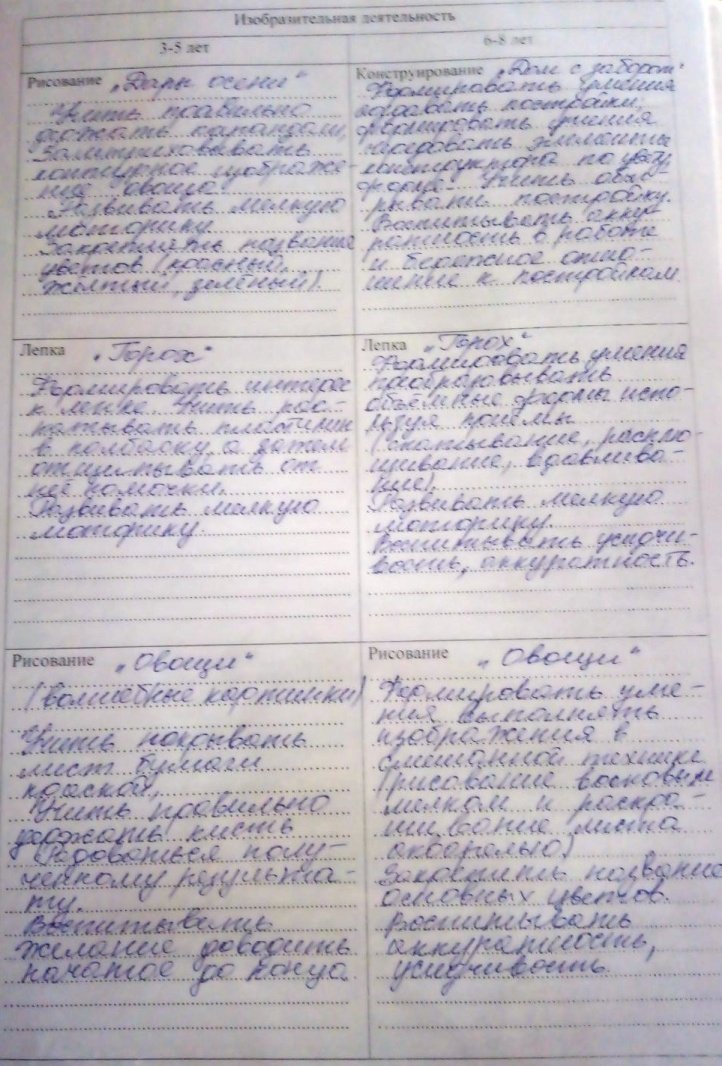 Изобразительная деятельность
3-5 лет
6-8 лет
Рисование „Дары осени“
Учить правильно
держать карандаш,
Заштриховывать
контурное изображе-
ние овоща.
Развивать мелкую
моторику.
Закреплять название
цветов (красный,
жёлтый, зелёный).
Конструирование „Дом с забором“
Формировать умения
создавать постройки,
формировать умения
чередовать элементы
конструктора по цвету
форме. Учить обыг-
рывать постройку.
Воспитывать акку-
ратность в работе
и бережное отно-
шение к постройкам
Лепка „Горох“
Формировать интерес
к лепке. Учить рас-
катывать пластилин
в колбаску, а затем
отщипывать от
неё комочки.
Развивать мелкую
моторику.
Лепка „Горох“
Формировать умения
преобразовывать
объёмные формы испо-
льзуя приёмы
(скатывание, расплю-
щивание, вдавлива-
ние).
Развивать мелкую
моторику.
Воспитывать усидчи-
вость, аккуратность.
Рисование „Овощи“
(волшебные картинки)
Учить покрывать
лист бумаги
краской,
Учить правильно
держать кисть
Радоваться полу-
ченному результа-
ту.
Воспитывать
желание доводить
начатое до конца
Рисование „Овощи“
Формировать уме-
ния выполнять
изображения в
смешанной технике
(рисование восковым
мелком и раскра-
шивание листа
акварелью)
Закрепить название
основных цветов.
Воспитывать
аккуратность,
усидчивость